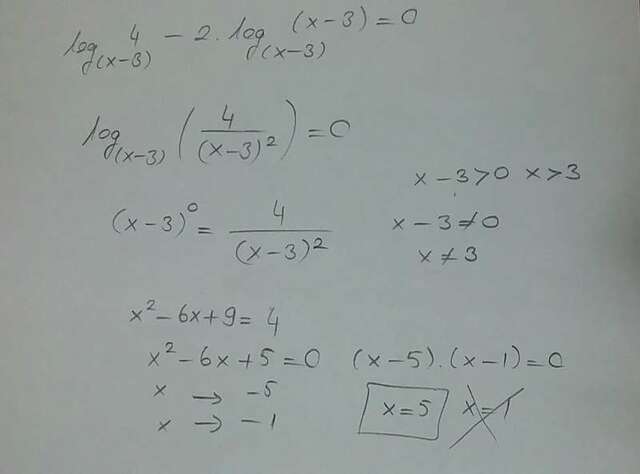 log_(x-3) 4 - 2 . log_(x-3) (x-3) = 0
log_(x-3) (4/(x-3)²) = 0
x - 3 > 0 x > 3
(x-3)⁰ = 4/(x-3)²
x - 3 ≠ 0
x ≠ 3
x² - 6x + 9 = 4
x² - 6x + 5 = 0 (x-5) . (x-1) = 0
x → -5
x → -1
x = 5 x = 1